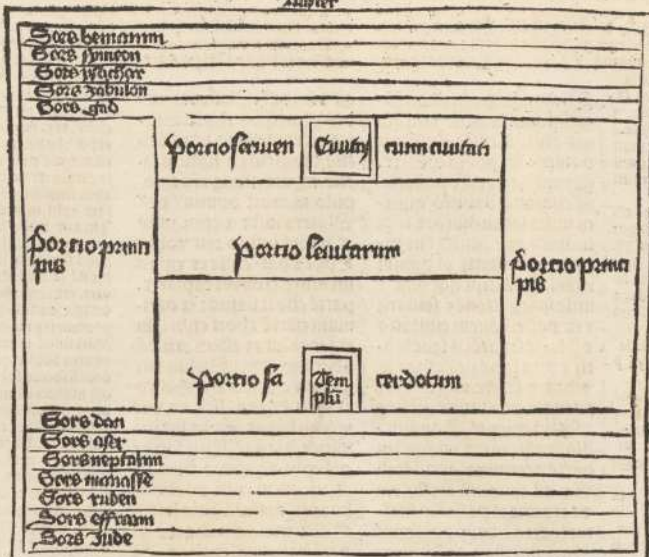 Auster
Sors beniamin
Sors symeon
Sors ysachar
Sors zabulon
Sors gad
Porcio seruien Ciuitas cium ciuitati
Porcio princi
pis
Porcio leuitarum
Porcio princi
pis
Porcio sa Tem
plū cerdotum
Sors dan
Sors aser
Sors neptalim
Sors manasse
Sors ruben
Sors effraim
Sors Jude